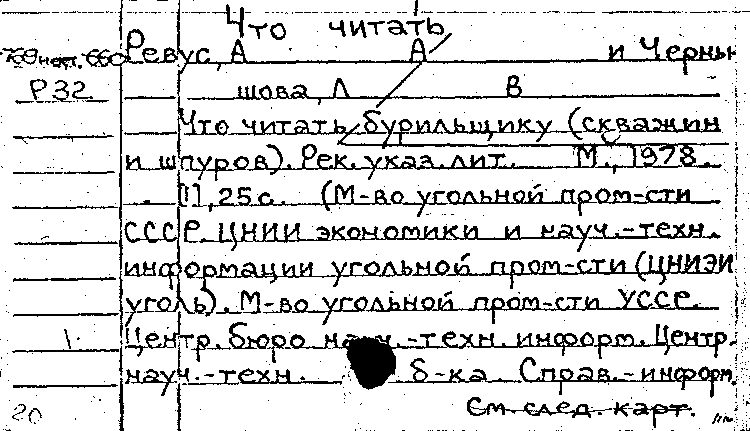 Что читать
Ревус, А А и Черны
Р32 шова, Л В
Что читать бурильщику (скважин
и шпуров). Рек. указ. лит. М., 1978.
II, 25 с. (М-во угольной пром-сти
СССР. ЦНИИ экономики и науч.-техн.
информации угольной пром-сти (ЦНИЭИ
уголь). М-во угольной пром-сти УССР.
1. Центр. бюро науч.-техн. информ. Центр.
науч.-техн. б-ка. Справ.-информ.
20 См. след. карт.